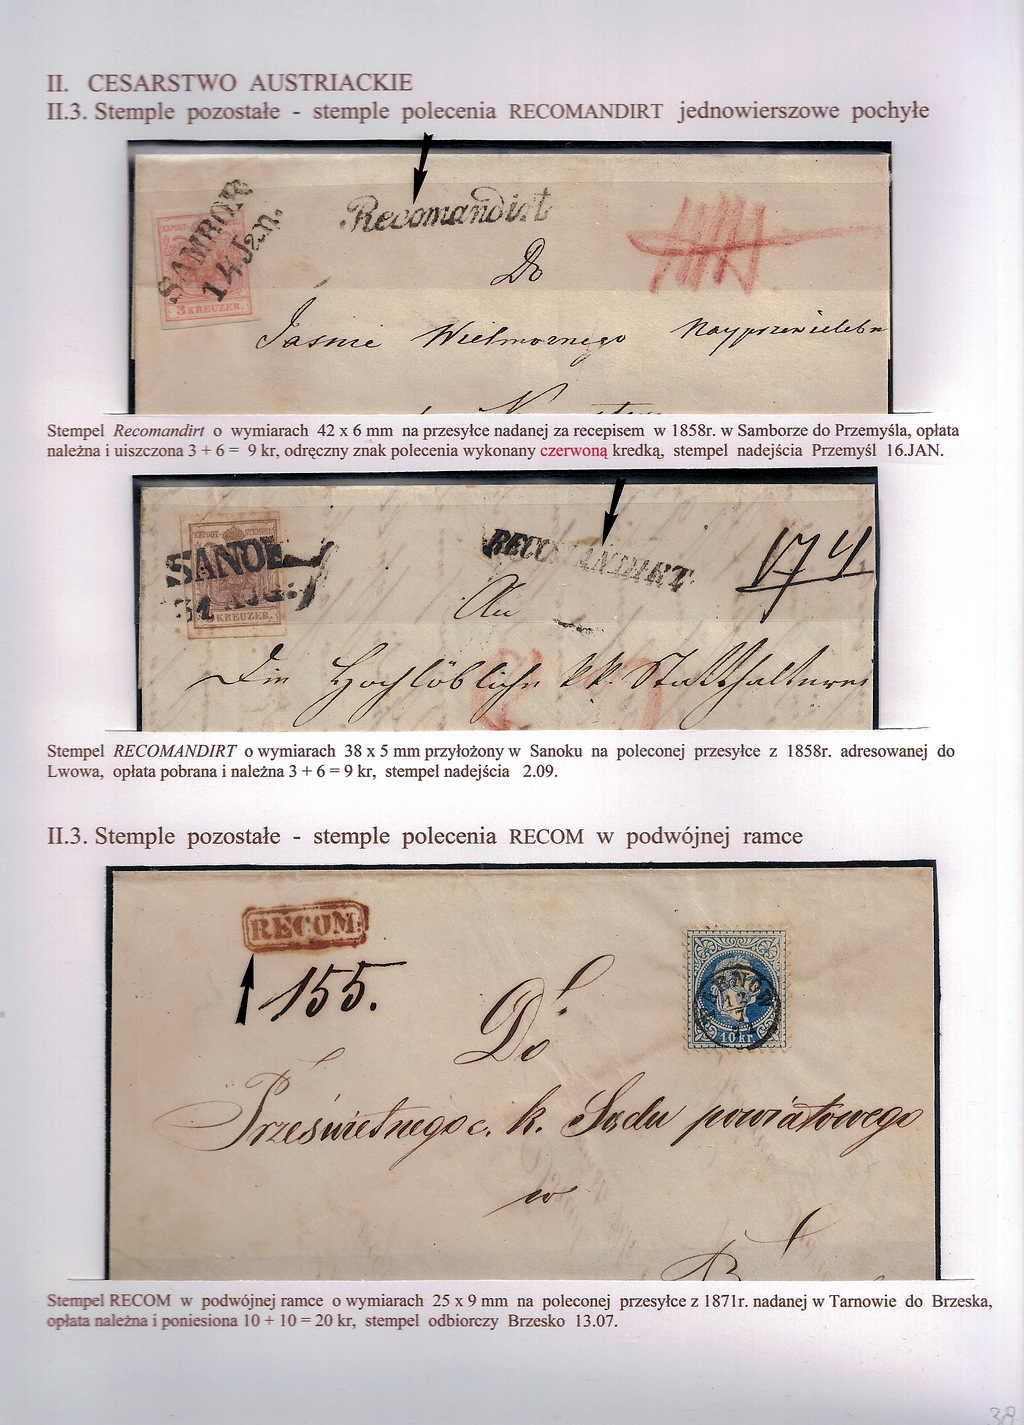 II. CESARSTWO AUSTRIACKIE
II.3. Stemple pozostałe - stemple polecenia RECOMANDIRT jednowierszowe pochyłe
SAMBOR
14 Jan.
3 KREUZER.
Recomandirt
Do
Jasnie Wielmoznego Nayprzewielebn
Stempel Recomandirt o wymiarach 42 x 6 mm na przesyłce nadanej za recepisem w 1858r. w Samborze do Przemyśla, opłata
należna i uiszczona 3 + 6 = 9 kr, odręczny znak polecenia wykonany czerwoną kredką, stempel nadejścia Przemyśl 16.JAN.
SANOK
31 AUG:
KREUZER.
RECOMANDIRT
174
An
Die Hochlöbliche kk. Statthalterei
Stempel RECOMANDIRT o wymiarach 38 x 5 mm przyłożony w Sanoku na poleconej przesyłce z 1858r. adresowanej do
Lwowa, opłata pobrana i należna 3 + 6 = 9 kr, stempel nadejścia 2.09.
II.3. Stemple pozostałe - stemple polecenia RECOM w podwójnej ramce
RECOM.
155.
Do
12
7
10 kr.
Prześwietnego c. k. Sądu powiatowego
w
Stempel RECOM w podwójnej ramce o wymiarach 25 x 9 mm na poleconej przesyłce z 1871r. nadanej w Tarnowie do Brzeska,
opłata należna i poniesiona 10 + 10 = 20 kr, stempel odbiorczy Brzesko 13.07.
38